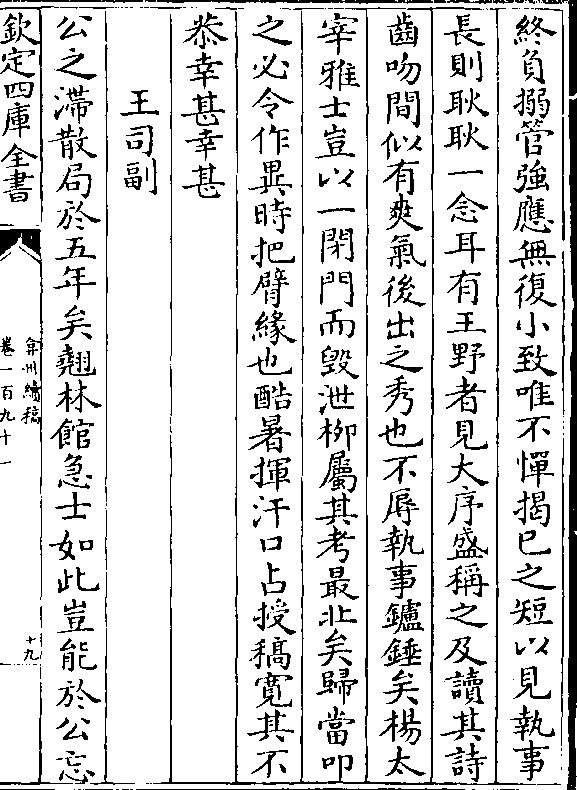 終負搦管強應無復小致唯不憚揭已之短以見執事
長則耿耿一念耳有王野者見大序盛稱之及讀其詩
齒吻間似有爽氣後出之秀也不辱執事鑪錘矣楊太
宰雅士豈以一閉門而毀泄柳屬其考最北矣歸當叩
之必令作異時把臂緣也酷暑揮汗口占授稿寛其不
恭幸甚幸甚
王司副
公之滯散局於五年矣翹林館急士如此豈能於公忘
欽定四庫全書
弇州續稿
卷一百九十一
十九